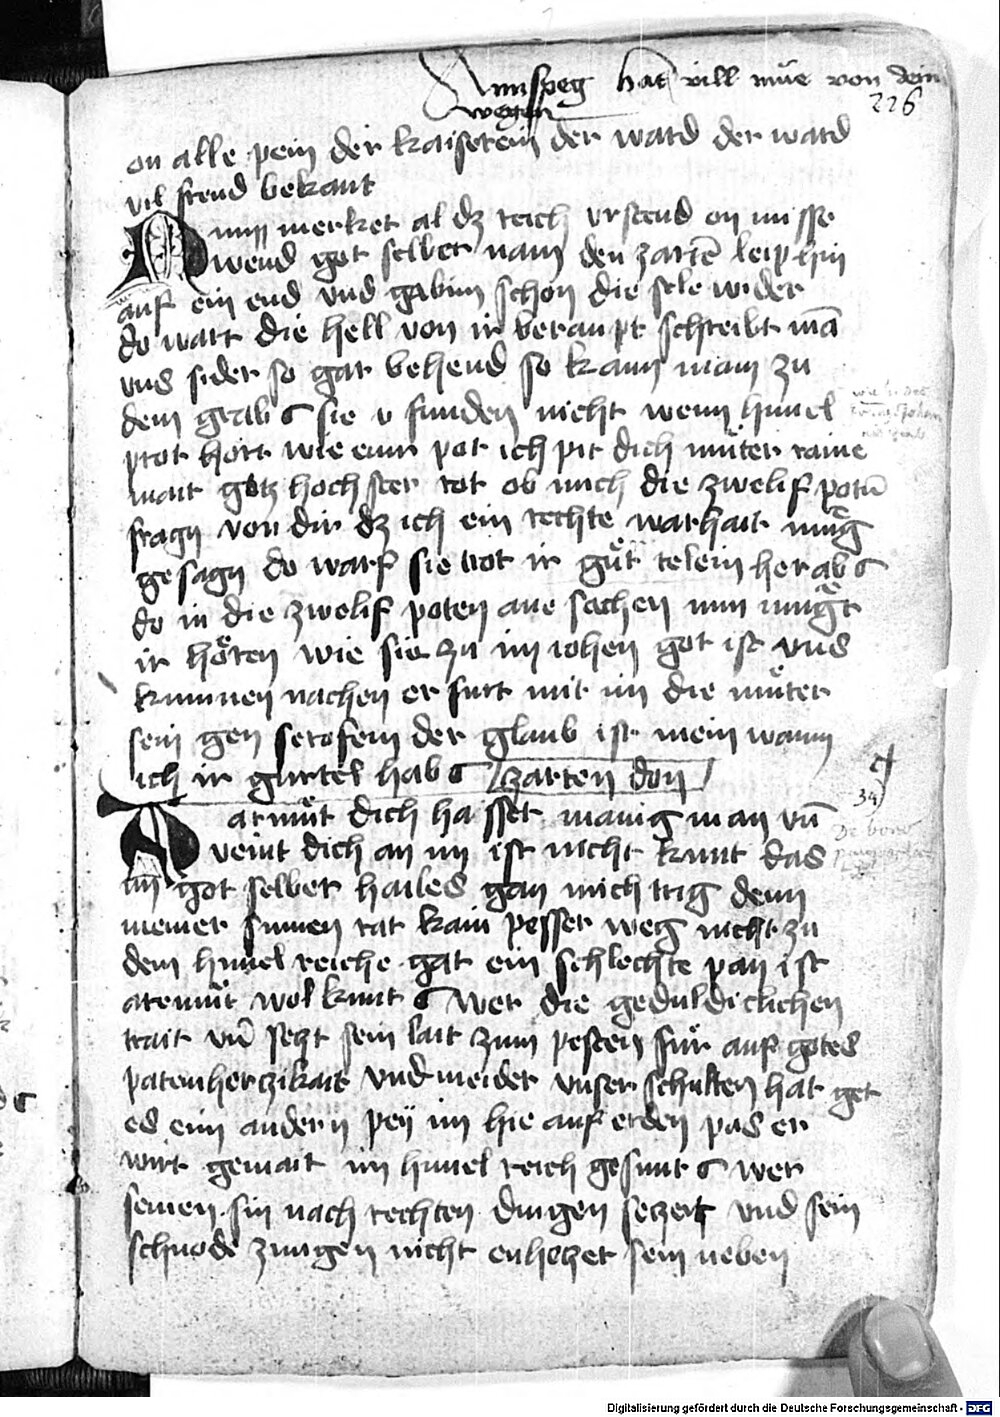 Annspeg hat vill müe von dein
wegen
226
on alle pein der kaiserein der ward der ward
vil freud bekant
Nunn merket al dz reich vrstend on misse
wend got selber nam den zartē leip hin
auf ein end vnd gabim schon die sele wider
do wart die hell von ir beraupt schreibt mā
vns sider so gar behend so kam man zu
dem grabs sie v funden nicht wenn himel
prot hört wie eim pot ich pit dich mũter raine
mait gotz hochster rot ob mich die zwelif potñ
fragn von dir dz ich ein rechte warhait mũg
gesagn do warf sie rot ir gũrtelein herabs
do in die zwelif poten ane sachen nun mũgt
ir hören wie sie zu im iohen got ist vns
kumnen nachen er furt mit im die mũter
sein gen serofein der glaub ist mein wann
ich ir gurtel habs zarten don
34
Armũt dich hasset manig man vñ
veint dich an im ist nicht kunt das
im got selber hailes gan mich trig denn
meiner sinnen rat kain pesser weg nicht zu
dem himel reiche gat ein schlechte pan ist
aremũt wol kunt s wer die geduldiclichen
trait vñ setzt sein lait zum pesten für auf gotes
parmherczikait vnd meidet vnser schulten hat get
es eim andern pey im hie auf erden pas er
wirt gemait im himel reich gesunt s wer
seinen sin nach rechten dingen seczet vnd sein
schnode zungen nicht enheczet sein neben
Digitalisierung gefördert durch die Deutsche Forschungsgemeinschaft - DFG